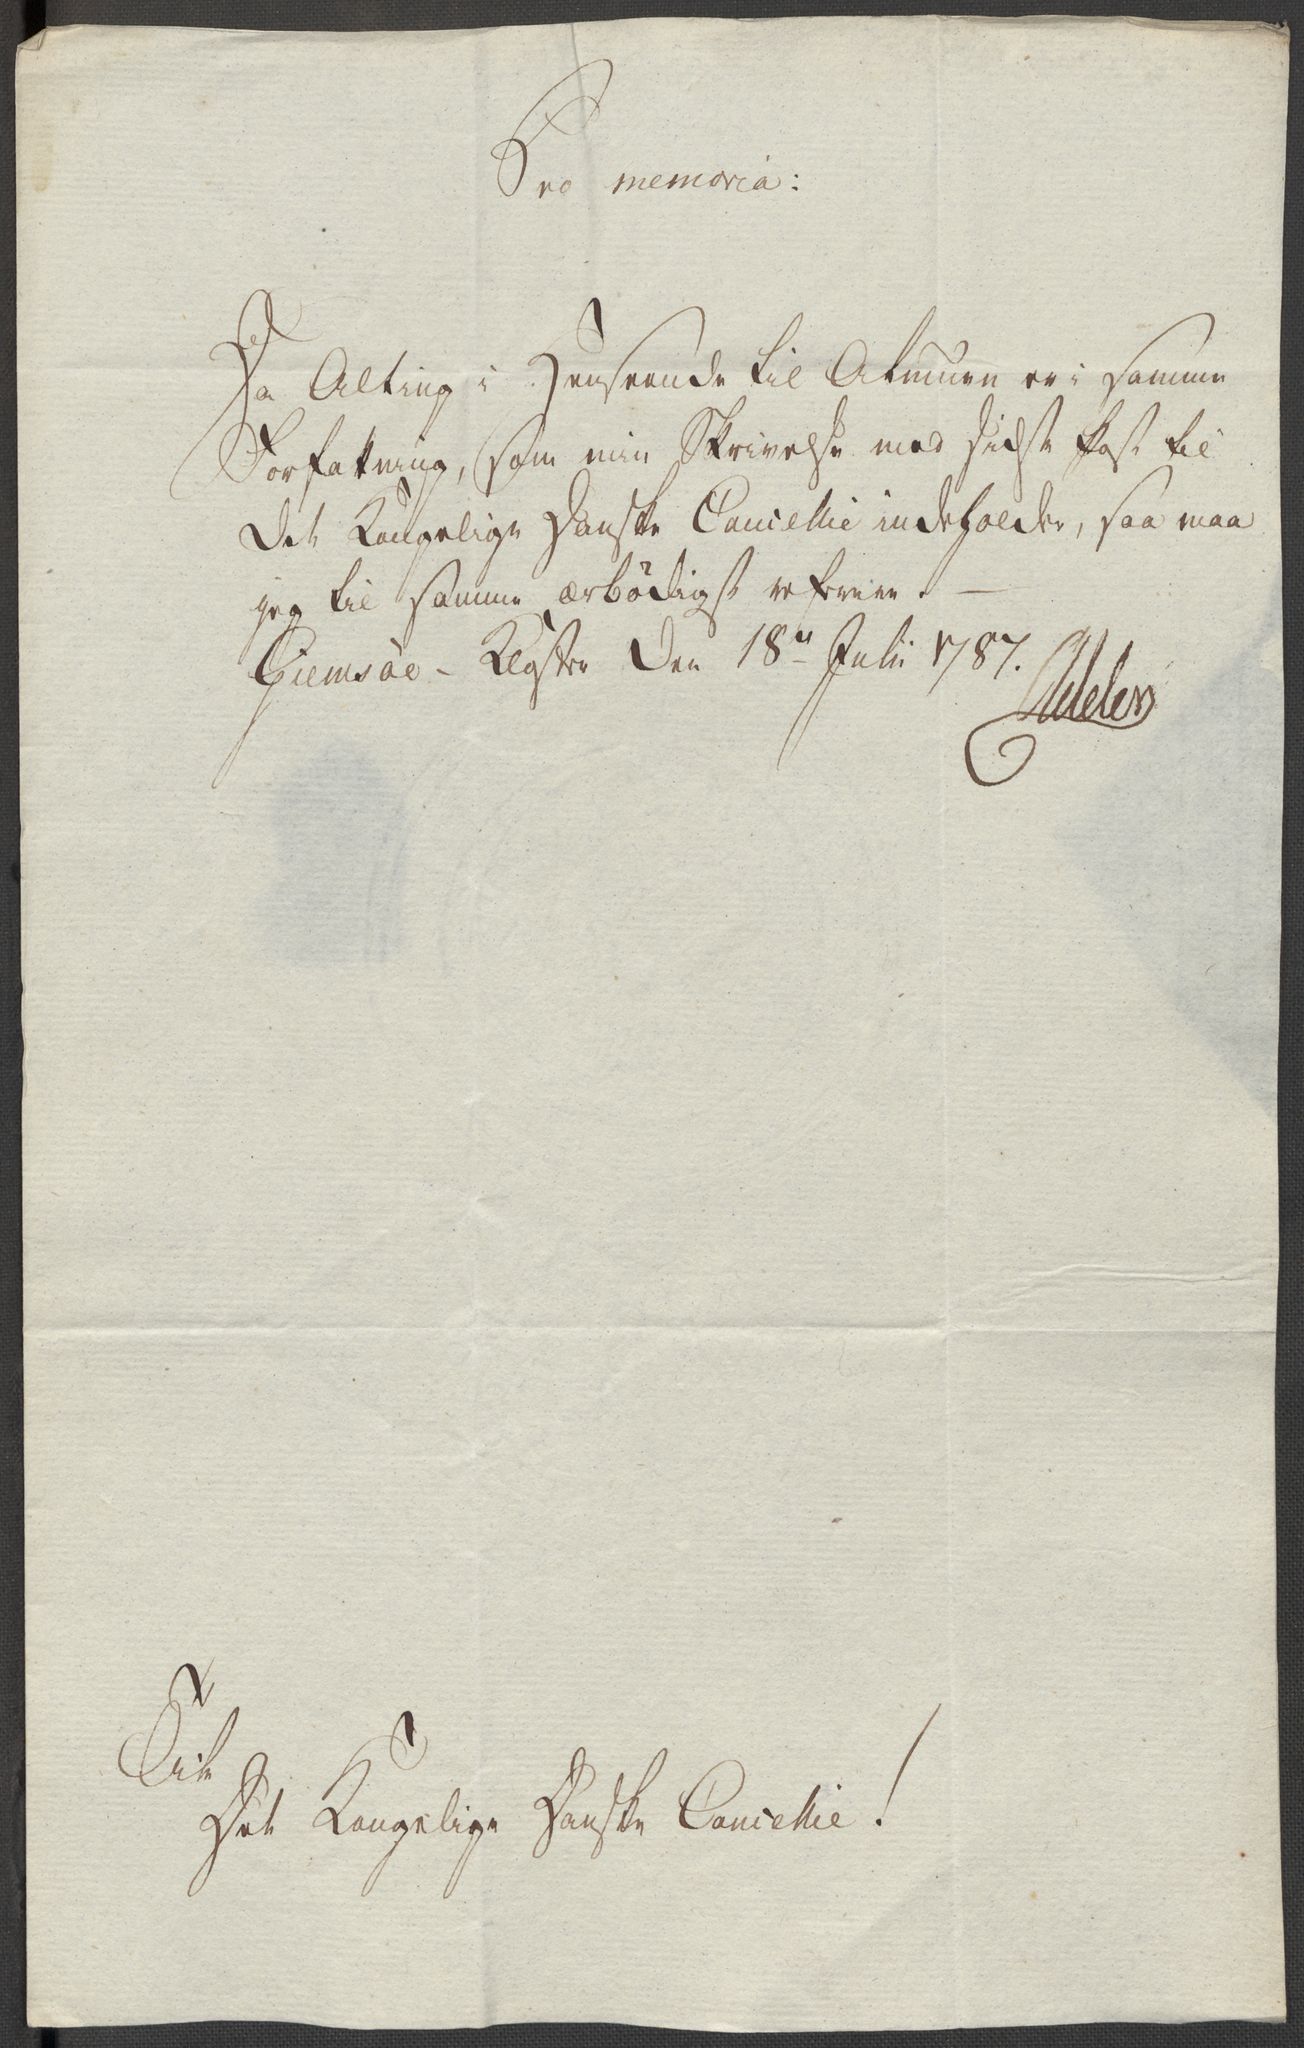 Pro memoria:
Da Alting i Henseende til Almuen er i samme
Forfatning, som min Skrivelse med sidste Post til
det Kongelige Danske Cancellie indeholder, saa maa
jeg til samme ærbödigst referere. —
Giemsöe-Kloster den 18de Julii 1787.
Adeler
Til
Det Kongelige Danske Cancellie!